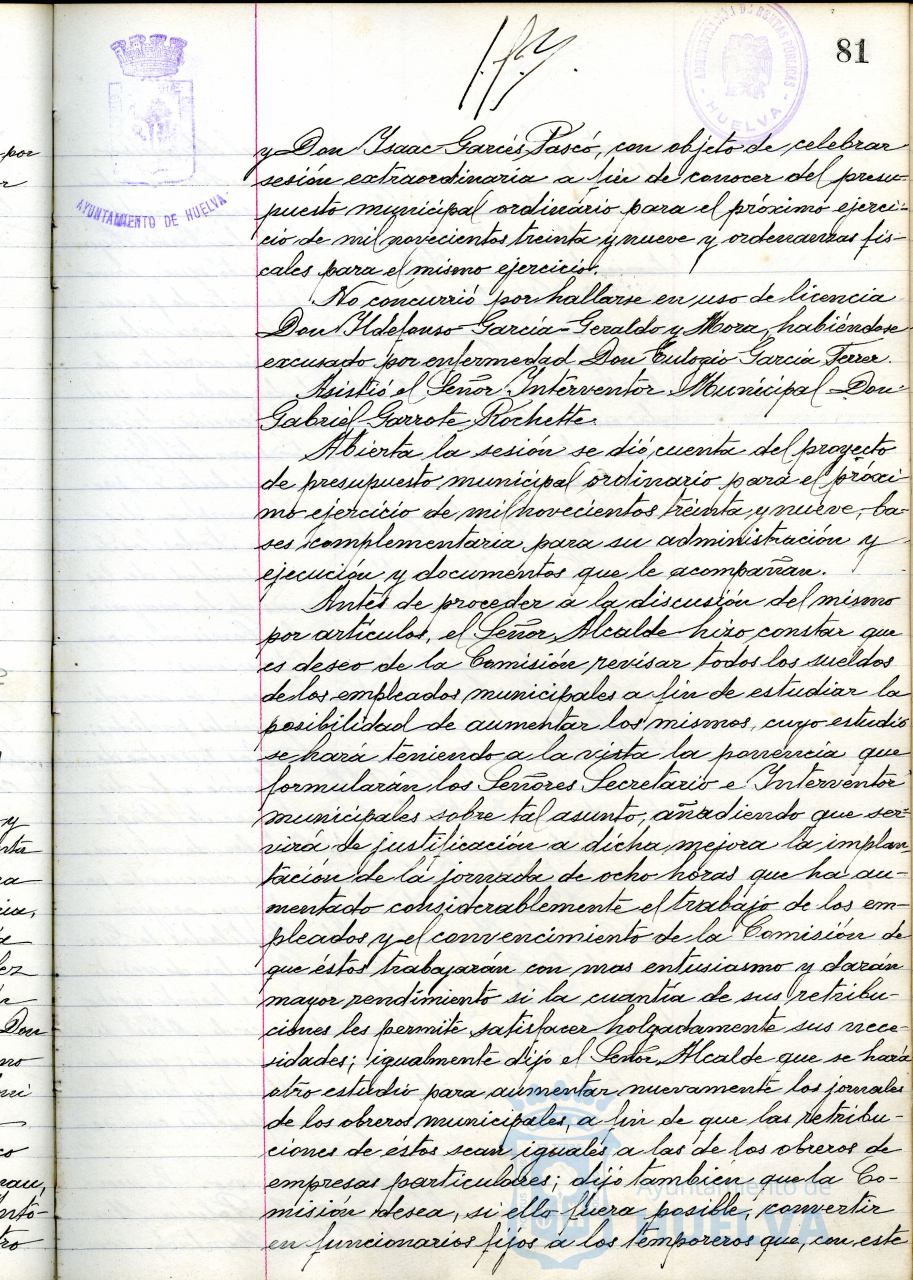 81
ADMINISTRACIÓN DE RENTAS PÚBLICAS
- HUELVA -
AYUNTAMIENTO DE HUELVA
y Don Isaac Garcés Pascó, con objeto de celebrar
sesión extraordinaria a fin de conocer del presu-
puesto municipal ordinario para el próximo ejerci-
cio de mil novecientos treinta y nueve y ordenanzas fis-
cales para el mismo ejercicio.
No concurrió por hallarse en uso de licencia
Don Ildefonso García-Geraldo y Mora, habiéndose
excusado por enfermedad Don Eulogio García Ferrer.
Asistió el Señor Interventor Municipal Don
Gabriel Garrote Rochette.
Abierta la sesión se dió cuenta del proyecto
de presupuesto municipal ordinario para el próxi-
mo ejercicio de mil novecientos treinta y nueve, ba-
ses complementaria para su administración y
ejecución y documentos que le acompañan.
Antes de proceder a la discusión del mismo
por artículos, el Señor Alcalde hizo constar que
es deseo de la Comisión revisar todos los sueldos
de los empleados municipales a fin de estudiar la
posibilidad de aumentar los mismos, cuyo estudio
se hará teniendo a la vista la ponencia que
formularán los Señores Secretario e Interventor
municipales sobre tal asunto, añadiendo que ser-
virá de justificación a dicha mejora la implan-
tación de la jornada de ocho horas que ha au-
mentado considerablemente el trabajo de los em-
pleados y el convencimiento de la Comisión de
que éstos trabajarán con mas entusiasmo y darán
mayor rendimiento si la cuantía de sus retribu-
ciones les permite satisfacer holgadamente sus nece-
sidades; igualmente dijo el Señor Alcalde que se hará
otro estudio para aumentar nuevamente los jornales
de los obreros municipales, a fin de que las retribu-
ciones de éstos sean iguales a las de los obreros de
empresas particulares; dijo también que la Co-
misión desea, si ello fuera posible, convertir
en funcionarios fijos a los temporeros que, con este
Ayuntamiento de
HUELVA